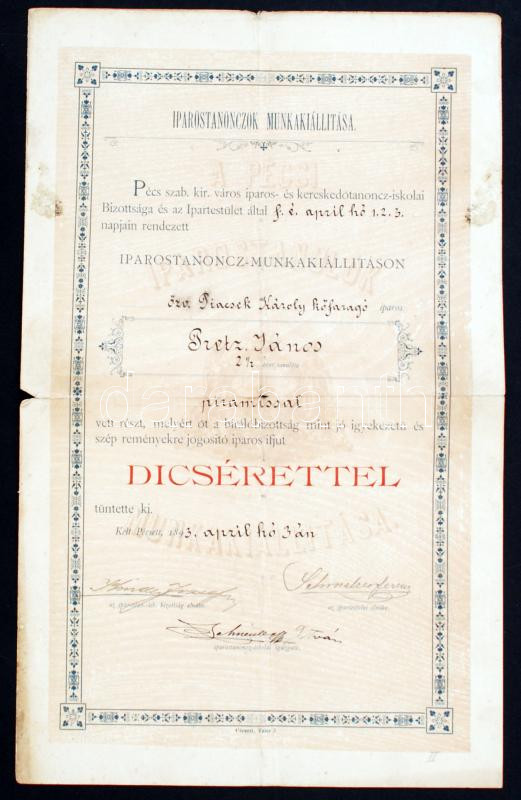 IPAROSTANONCZOK MUNKAKIÁLLITÁSA.
Pécs szab. kir. város iparos- és kereskedőtanoncz-iskolai
Bizottsága és az Ipartestület által f. é. április hó 1. 2. 3.
napjain rendezett
IPAROSTANONCZ-MUNKAKIÁLLITÁSON
özv. Piacsek Károly kőfaragó iparos
Pretz János
2 ½ éves tanulója
piramissal
vett részt, melyért őt a birálóbizottság mint jó igyekezetű és
szép reményekre jogositó iparos ifjut
DICSÉRETTEL
tüntette ki.
Kelt Pécsett, 1893. április hó 3án
József
az iparostan.-isk. bizottság elnöke.
az ipartestület elnöke.
István
iparostanoncz-iskolai igazgató.
Pécsett, Taizs J.